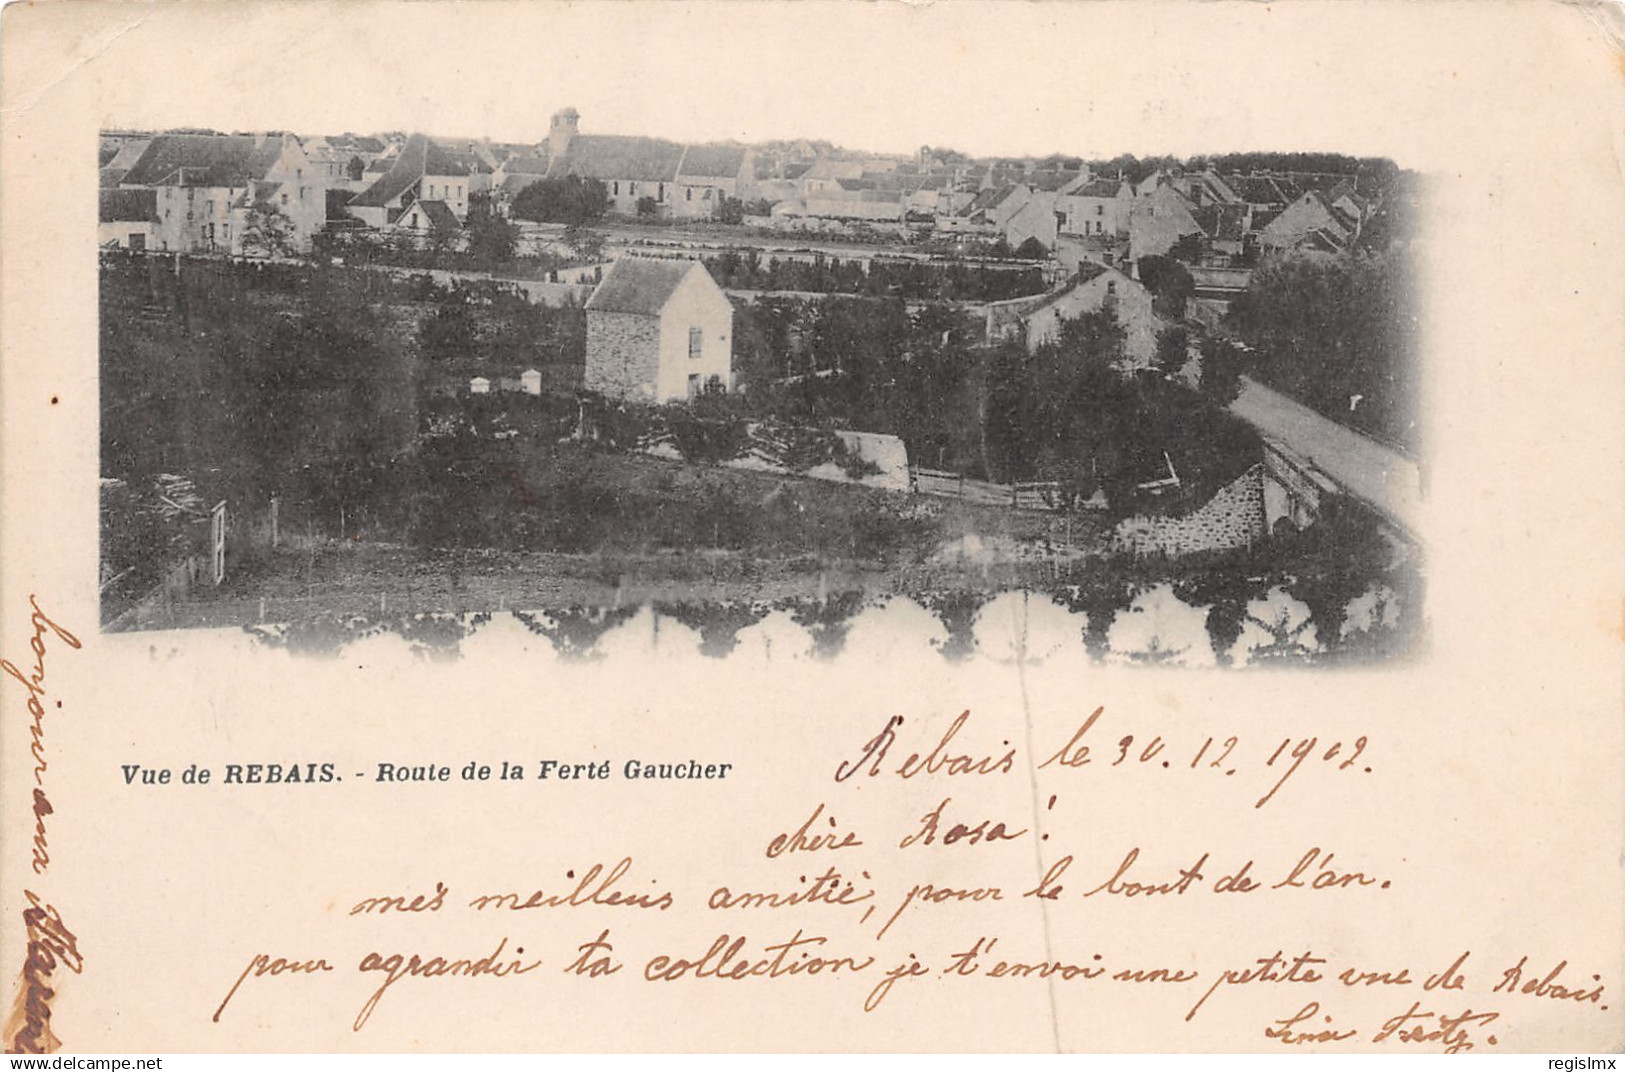 Vue de REBAIS. - Route de la Ferté Gaucher
Rebais le 30.12.1902.
chère Rosa!
més meilleurs amitié, pour le bout de l'an.
pour agrandir ta collection je t'envoi une petite vue de Rebais.
Lina
bonjour aux
www.delcampe.net
regislmx